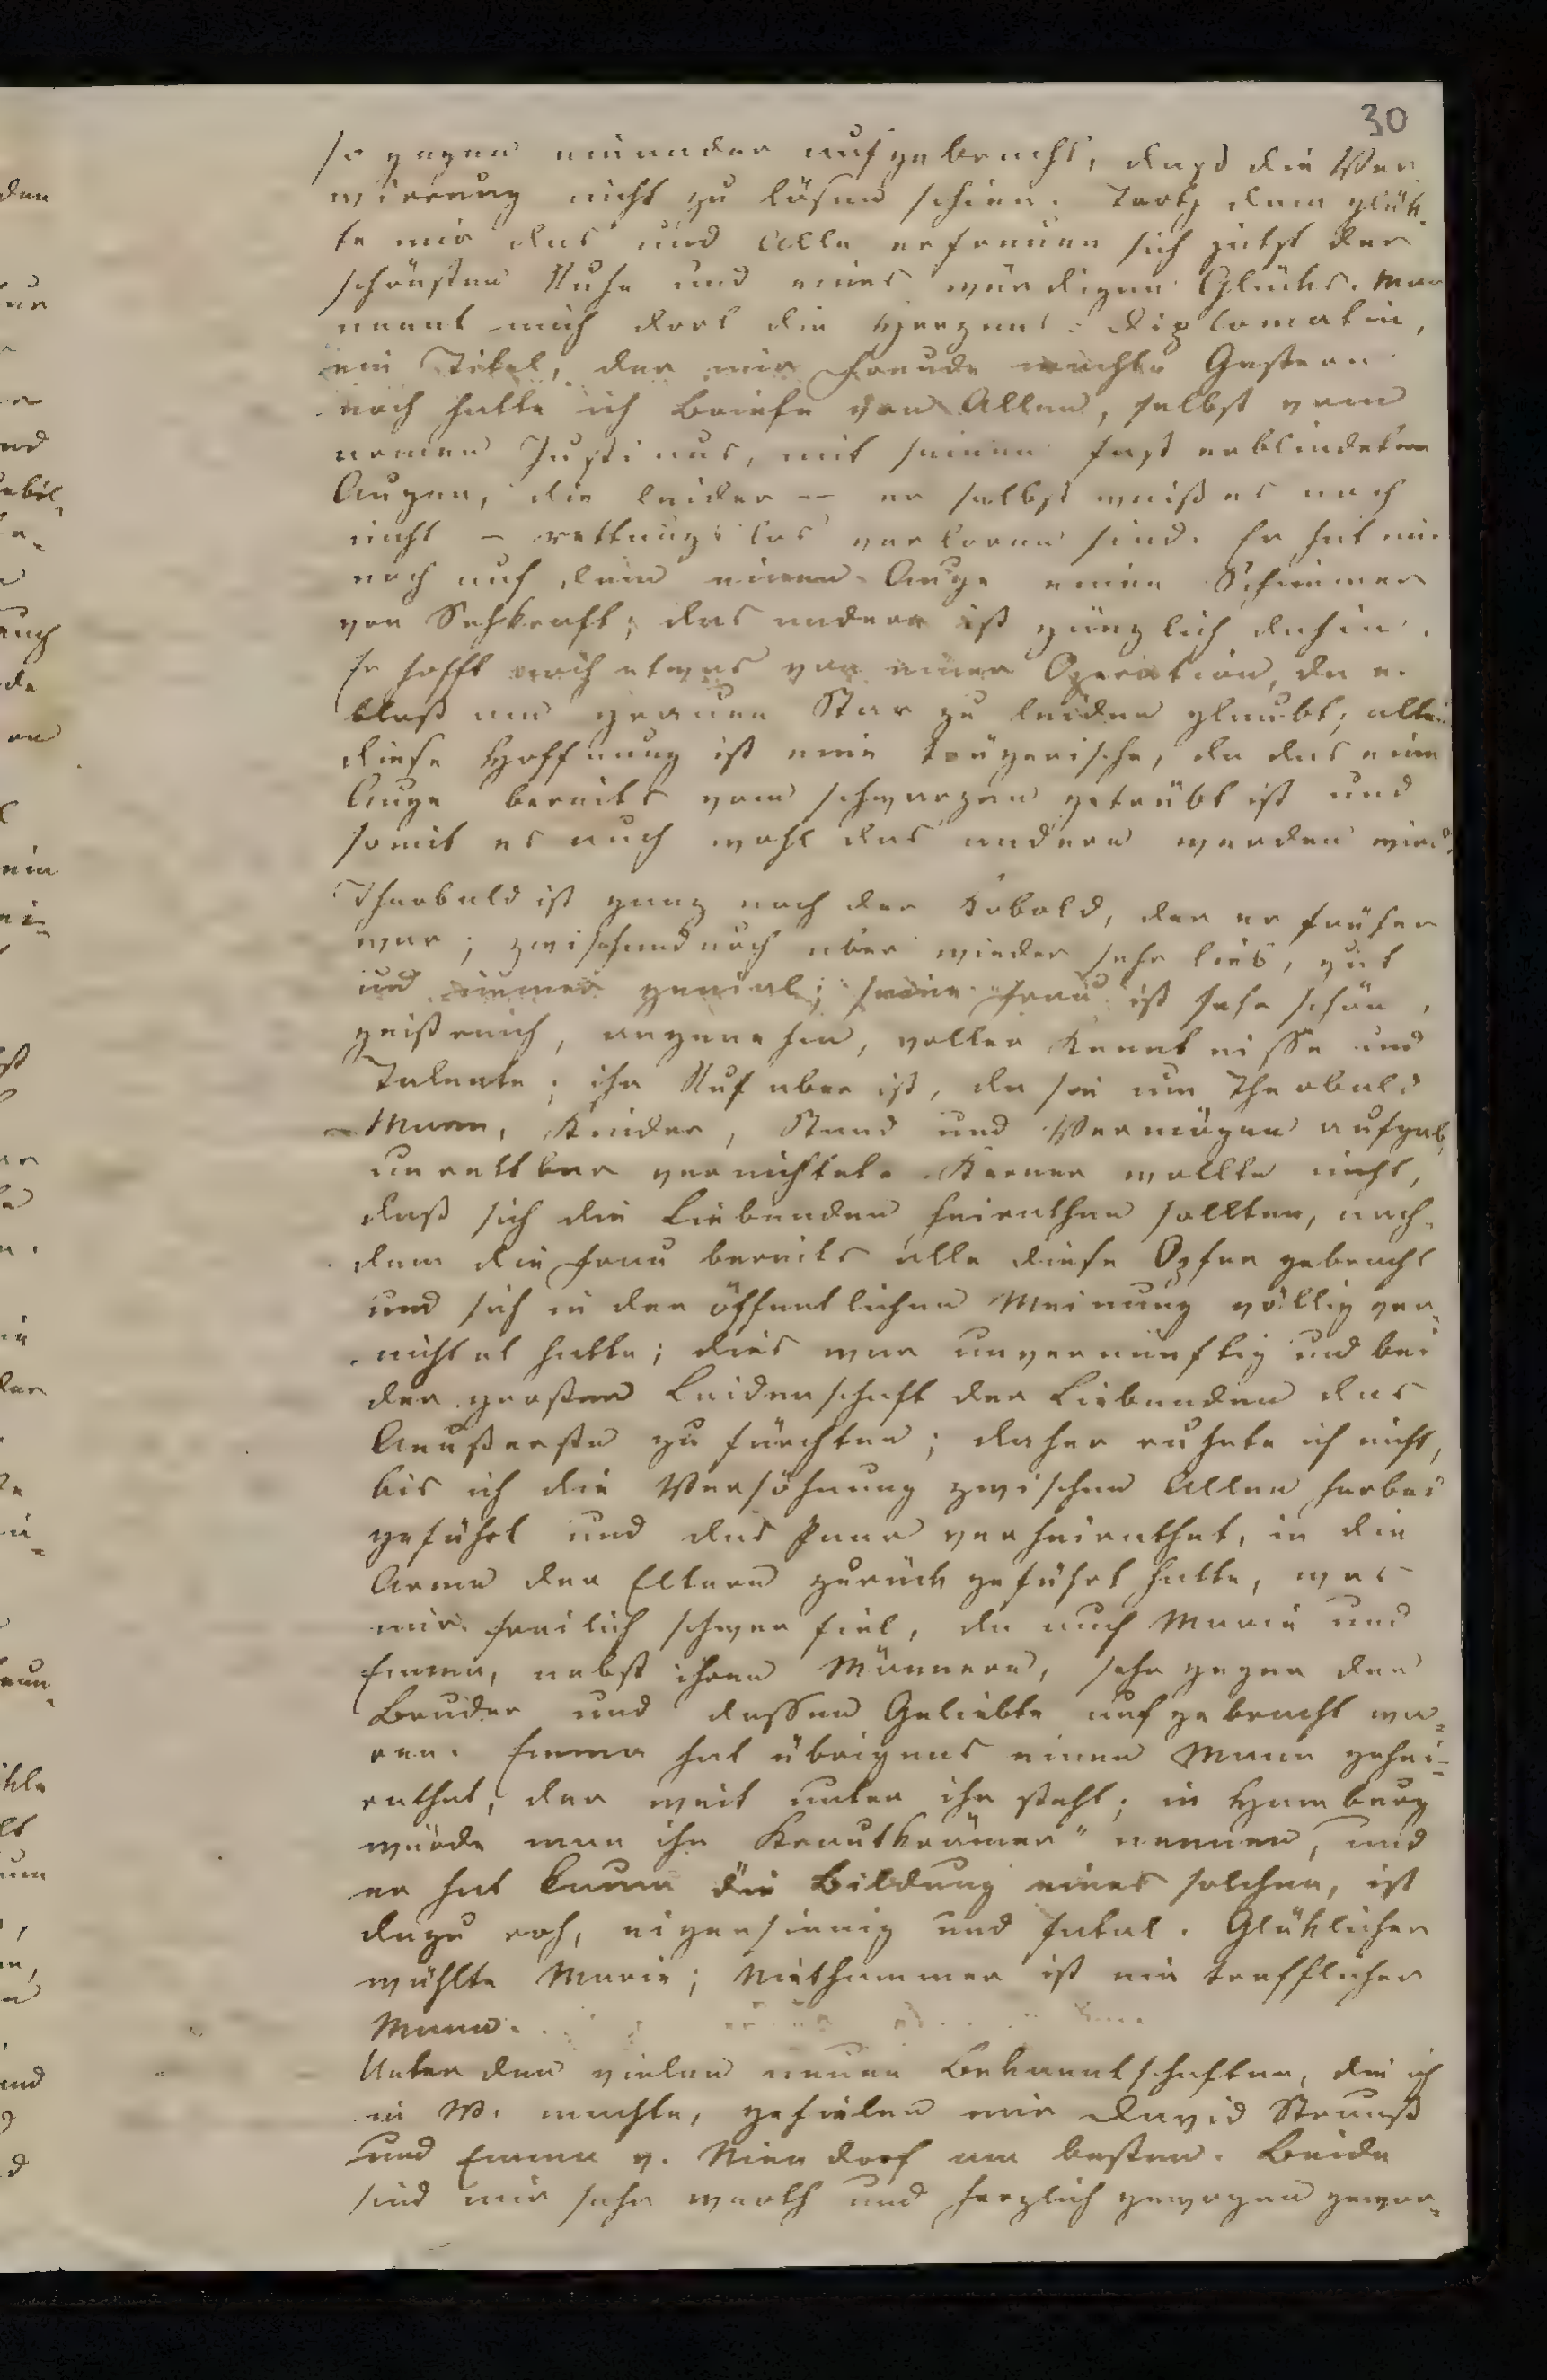 30
so gegen einander aufgebracht, dass die Ver-
wirrung nicht zu lösen schien. Trotz dem glük-
te mir das und Alle erfreuen sich jetzt der
schönsten Ruhe und eines würdigen Glücks. Man
nennt mich dort die Herzens-Diplomatin,
ein Titel, der mir Freude macht. Gestern
noch hatte ich Briefe von Allen, selbst vom
armen Justinus, mit seinen fast erblindeten
Augen, die leider — er selbst weiß es noch
nicht — rettungslos verloren sind. Er hat nur
noch auf dem einen Auge einen Schimmer
von Sehkraft; das andere ist gänzlich dahin.
Er hofft noch etwas von einer Operation, da er
bloß am grauen Star zu leiden glaubt; allein
diese Hoffnung ist eine trügerische, da das eine
Auge bereits vom schwarzen getrübt ist und
somit es auch wohl das andere werden wird.
Theobald ist ganz noch der Kobold, der er früher
war; zwischendurch aber wieder sehr lieb, gut
und immer genial; seine Frau ist sehr schön,
geistreich, angenehm, voller Kenntnisse und
Talente; ihr Ruf aber ist, da sie um Theobald
Mann, Kinder, Stand und Vermögen aufgab,
unrettbar vernichtet. Kerner wollte nicht,
daß sich die Liebenden heirathen sollten, nach-
dem die Frau bereits alle diese Opfer gebracht
und sich in der öffentlichen Meinung völlig ver-
nichtet hatte; dies war unvernünftig und bei
der großen Leidenschaft der Liebenden das
Aeußerste zu fürchten; daher ruhete ich nicht,
bis ich die Versöhnung zwischen Allen herbei
geführt und das Paar verheirathet, in die
Arme der Eltern zurück geführt hatte, was
mir freilich schwer fiel, da auch Marie und
Emma, nebst ihren Männern, sehr gegen den
Bruder und dessen Geliebte aufgebracht wa-
ren. Emma hat übrigens einen Mann gehei-
rathet, der weit unter ihr steht; in Hamburg
würde man ihn Krautkrämer" nennen, und
er hat kaum die Bildung eines solchen, ist
dazu roh, eigensinnig und fatal. Glüklicher
wählte Marie; Niethammer ist ein trefflicher
Mann.
Unter den vielen neuen Bekanntschaften, die ich
in W. machte, gefielen mir David Strauß
und Emma v. Niendorf am besten. Beide
sind mir sehr werth und herzlich gewogen gewor-